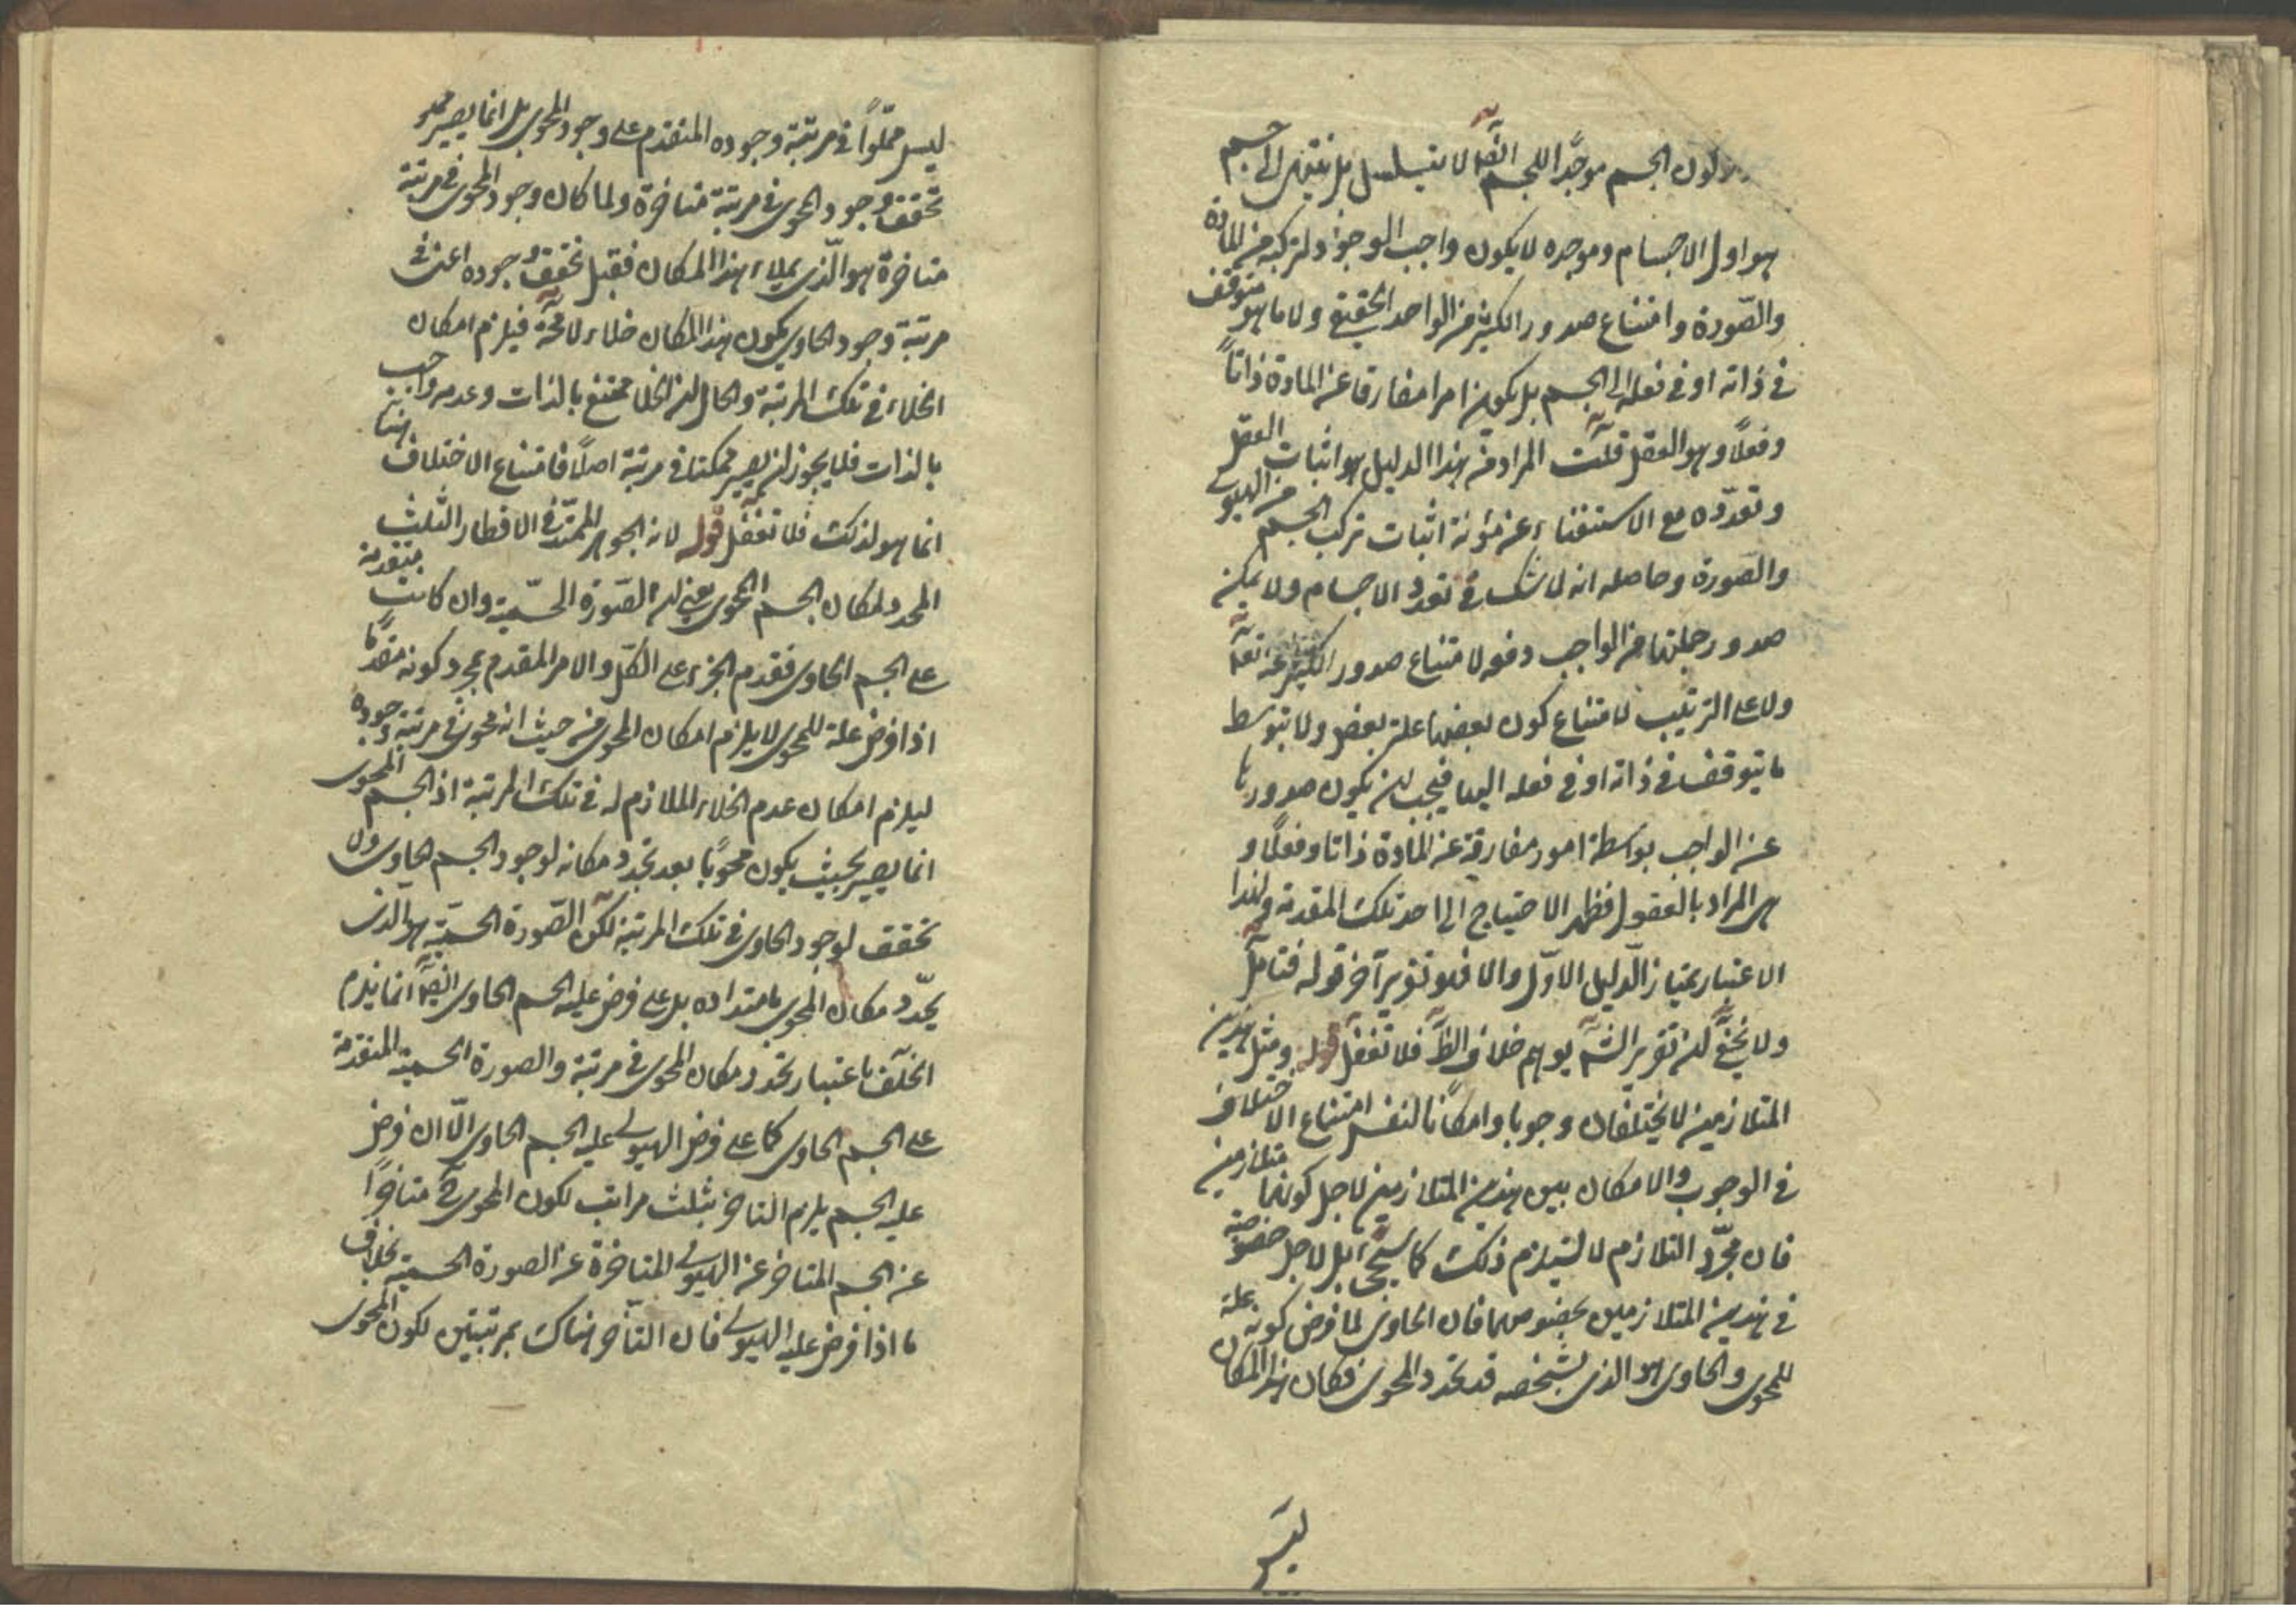 كون الجسم موجدا للجسم ايضا لا يتسلسل بل ينتهى الى جسم
هو اول الاجسام وموجده لا يكون واجب الوجود لتركبه من المادة
والصّورة وامتناع صدور الكثير من الواحد الحقيقى ولا ما هو متوقف
فى ذاته او فى فعله الى الجسم بل يكون امرا مفارقا عن المادة ذاتاً
وفعلاً وهو العقل قلت المراد من هذا الدليل هو اثبات العقل
وتعدّده مع الاستغناء عن مؤنة اثبات تركب الجسم من الهيولى
والصّورة وحاصله انه لا شك فى تعدد الاجسام ولا يمكن
صدور جملتها من الواجب دفعه لامتناع صدور الكثير عنه تعا
ولا على الترتيب لامتناع كون بعضها علة بعض ولا بتوسط
ما يتوقف فى ذاته او فى فعله اليها فيجب ان يكون صدورها
عن الواجب بواسطة امور مفارقة عن المادة ذاتا وفعلًا و
هى المراد بالعقول فظهر الاحتياج الى احد تلك المقدمة ولهذا
الاعتبار يمتاز الدّليل الاوّل والا فهو تقرير آخر قوله فتأمل
ولا يخفى ان تقرير الش يوهم خلاف الظ فلا تغفل قوله ومثل هذين
المتلازمين لا يختلفان وجوبا وامكانا لنفس امتناع الاختلاف
فى الوجوب والامكان بين هذين المتلازمين لاجل كونهما متلازمين
فان مجرّد التلازم لا يستلزم ذلك كما سيجئ بل لاجل خصوصية
فى هذين المتلازمين بخصوصهما فان الحاوى لما فرض كونه علة
للمحوى والحاوى هو الذى بشخصه قد تحدد المحوى فكان هذا المكان
ليس
ليس مملّواً فى مرتبة وجوده المتقدم على وجود المحوى بل انما يصير مملو
تحقق وجود المحوى فى مرتبة متاخرة ولما كان وجود المحوى فى مرتبة
متاخرة هو الّذى يملاء هذا المكان فقبل تحقق وجوده اعنى فى
مرتبة وجود الحاوى يكون هذا المكان خلاء لا محة فيلزم امكان
الخلاء فى تلك المرتبة والحال ان الخلا ممتنع بالذات وعدمه واجب
بالذات فلا يجوز ان يصير ممكنا فى مرتبة اصلًا فامتناع الاختلاف هنا
انما هو لذلك فلا تغفل قوله لانه الجوهر الممتدّ فى الاقطار الثلث
المحدد لمكان الجسم المحوى يعنى ان الصّورة الجسميّة وان كانت متقدمة
على الجسم الحاوى فقدم الجزء على الكلّ والامر المقدم بمجرد كونه مقدمًا
اذا فرض علة للمحوى لا يلزم امكان المحوى من حيث انه محوى فى مرتبة وجوده
ليلزم امكان عدم الخلاء الملازم له فى تلك المرتبة اذ الجسم المحوى
انما يصير بحيث يكون محويًا بعد تحدد مكانه لوجود الجسم الحاوى ولا
تحقق لوجود الحاوى فى تلك المرتبة لكن الصّورة الجسميّة هو الذى
يحدّد مكان المحوى بامتداده بل على فرض علية الجسم الحاوى ايضا انما يلزم
الخلف باعتبار تحدد مكان المحوى فى مرتبة والصورة الجسمية المتقدمة
على الجسم الحاوى كما على فرض الهيولى علية الجسم الحاوى الّا ان فرض
علية الجسم يلزم التاخر بثلث مراتب لكون المحوى ح متاخرًا
عن الجسم المتاخر عن الهيولى المتاخرة عن الصورة الجسمية بخلاف
ما اذا فرض علية الهيولى فان التأخر هناك بمرتبتين لكون المحوى